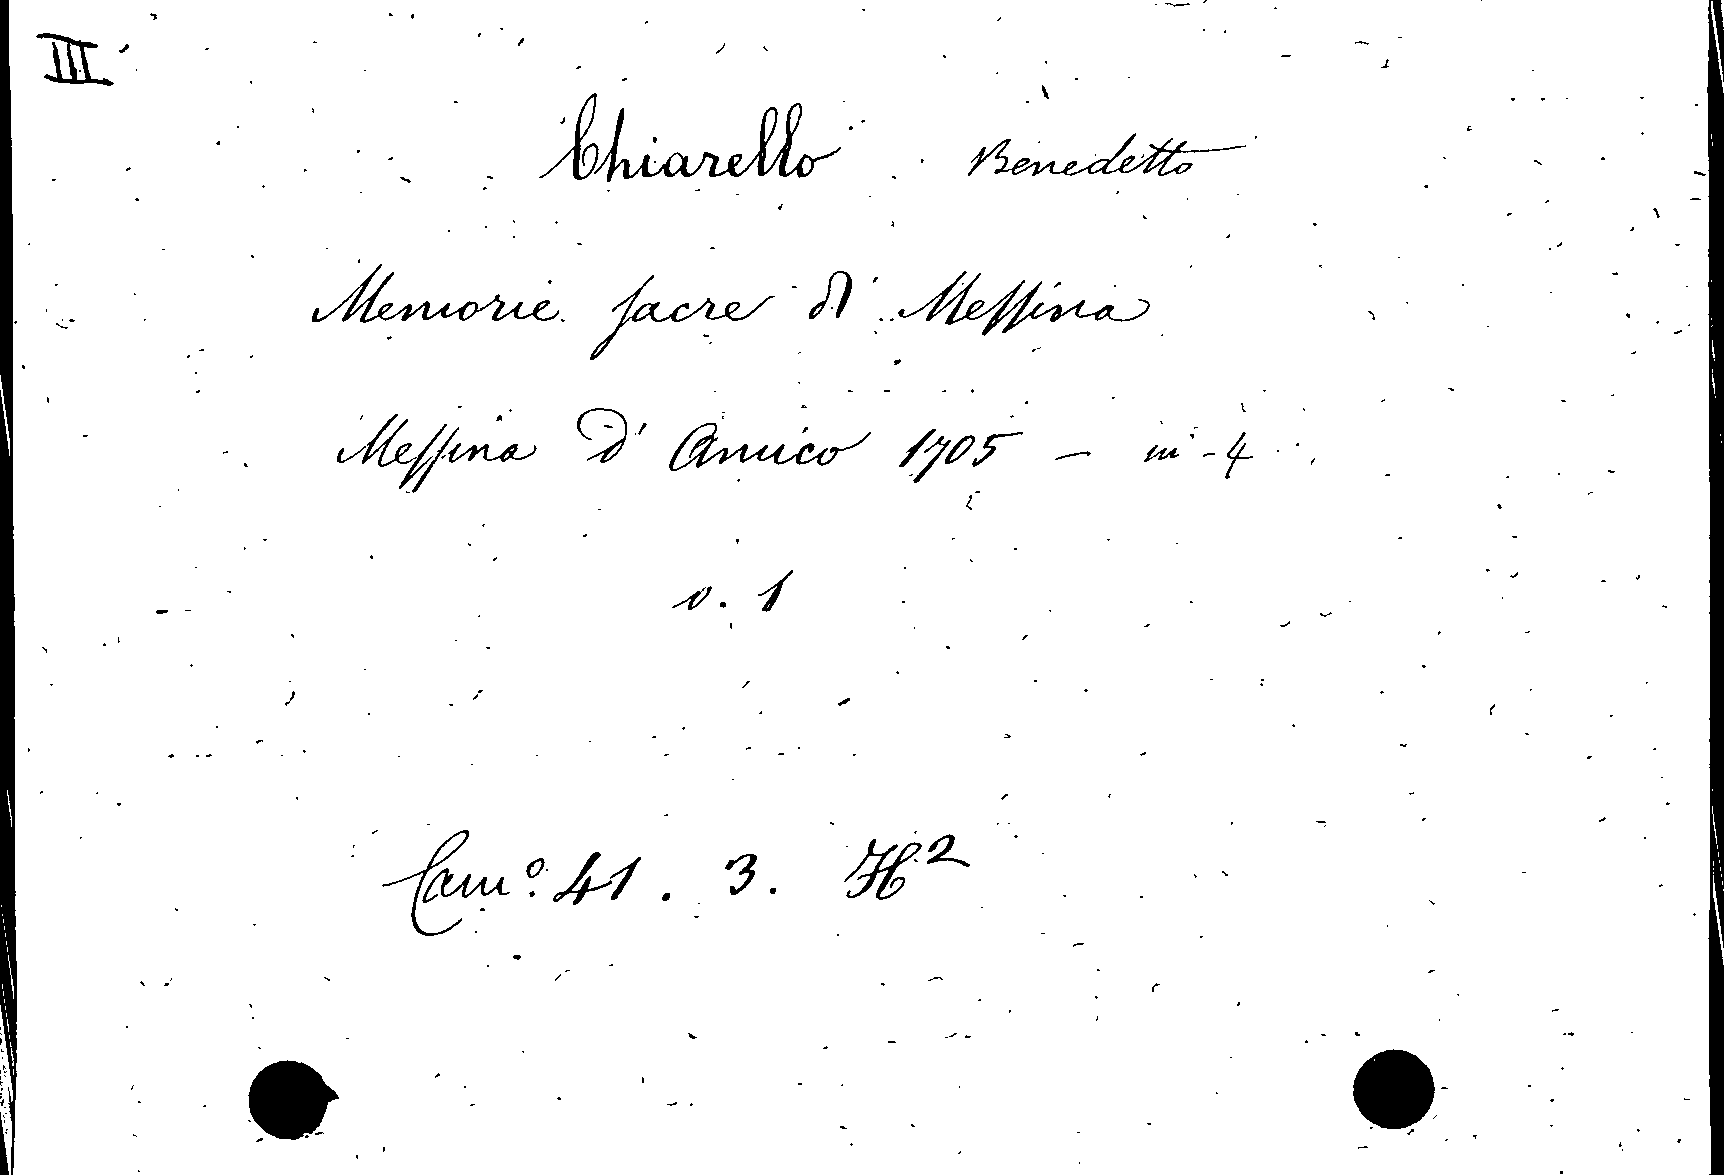 III
Chiarello Benedetto
Memorie sacre di Messina
Messina D' Amico 1705 - in-4
v. 1
Cam.º 41. 3. H²